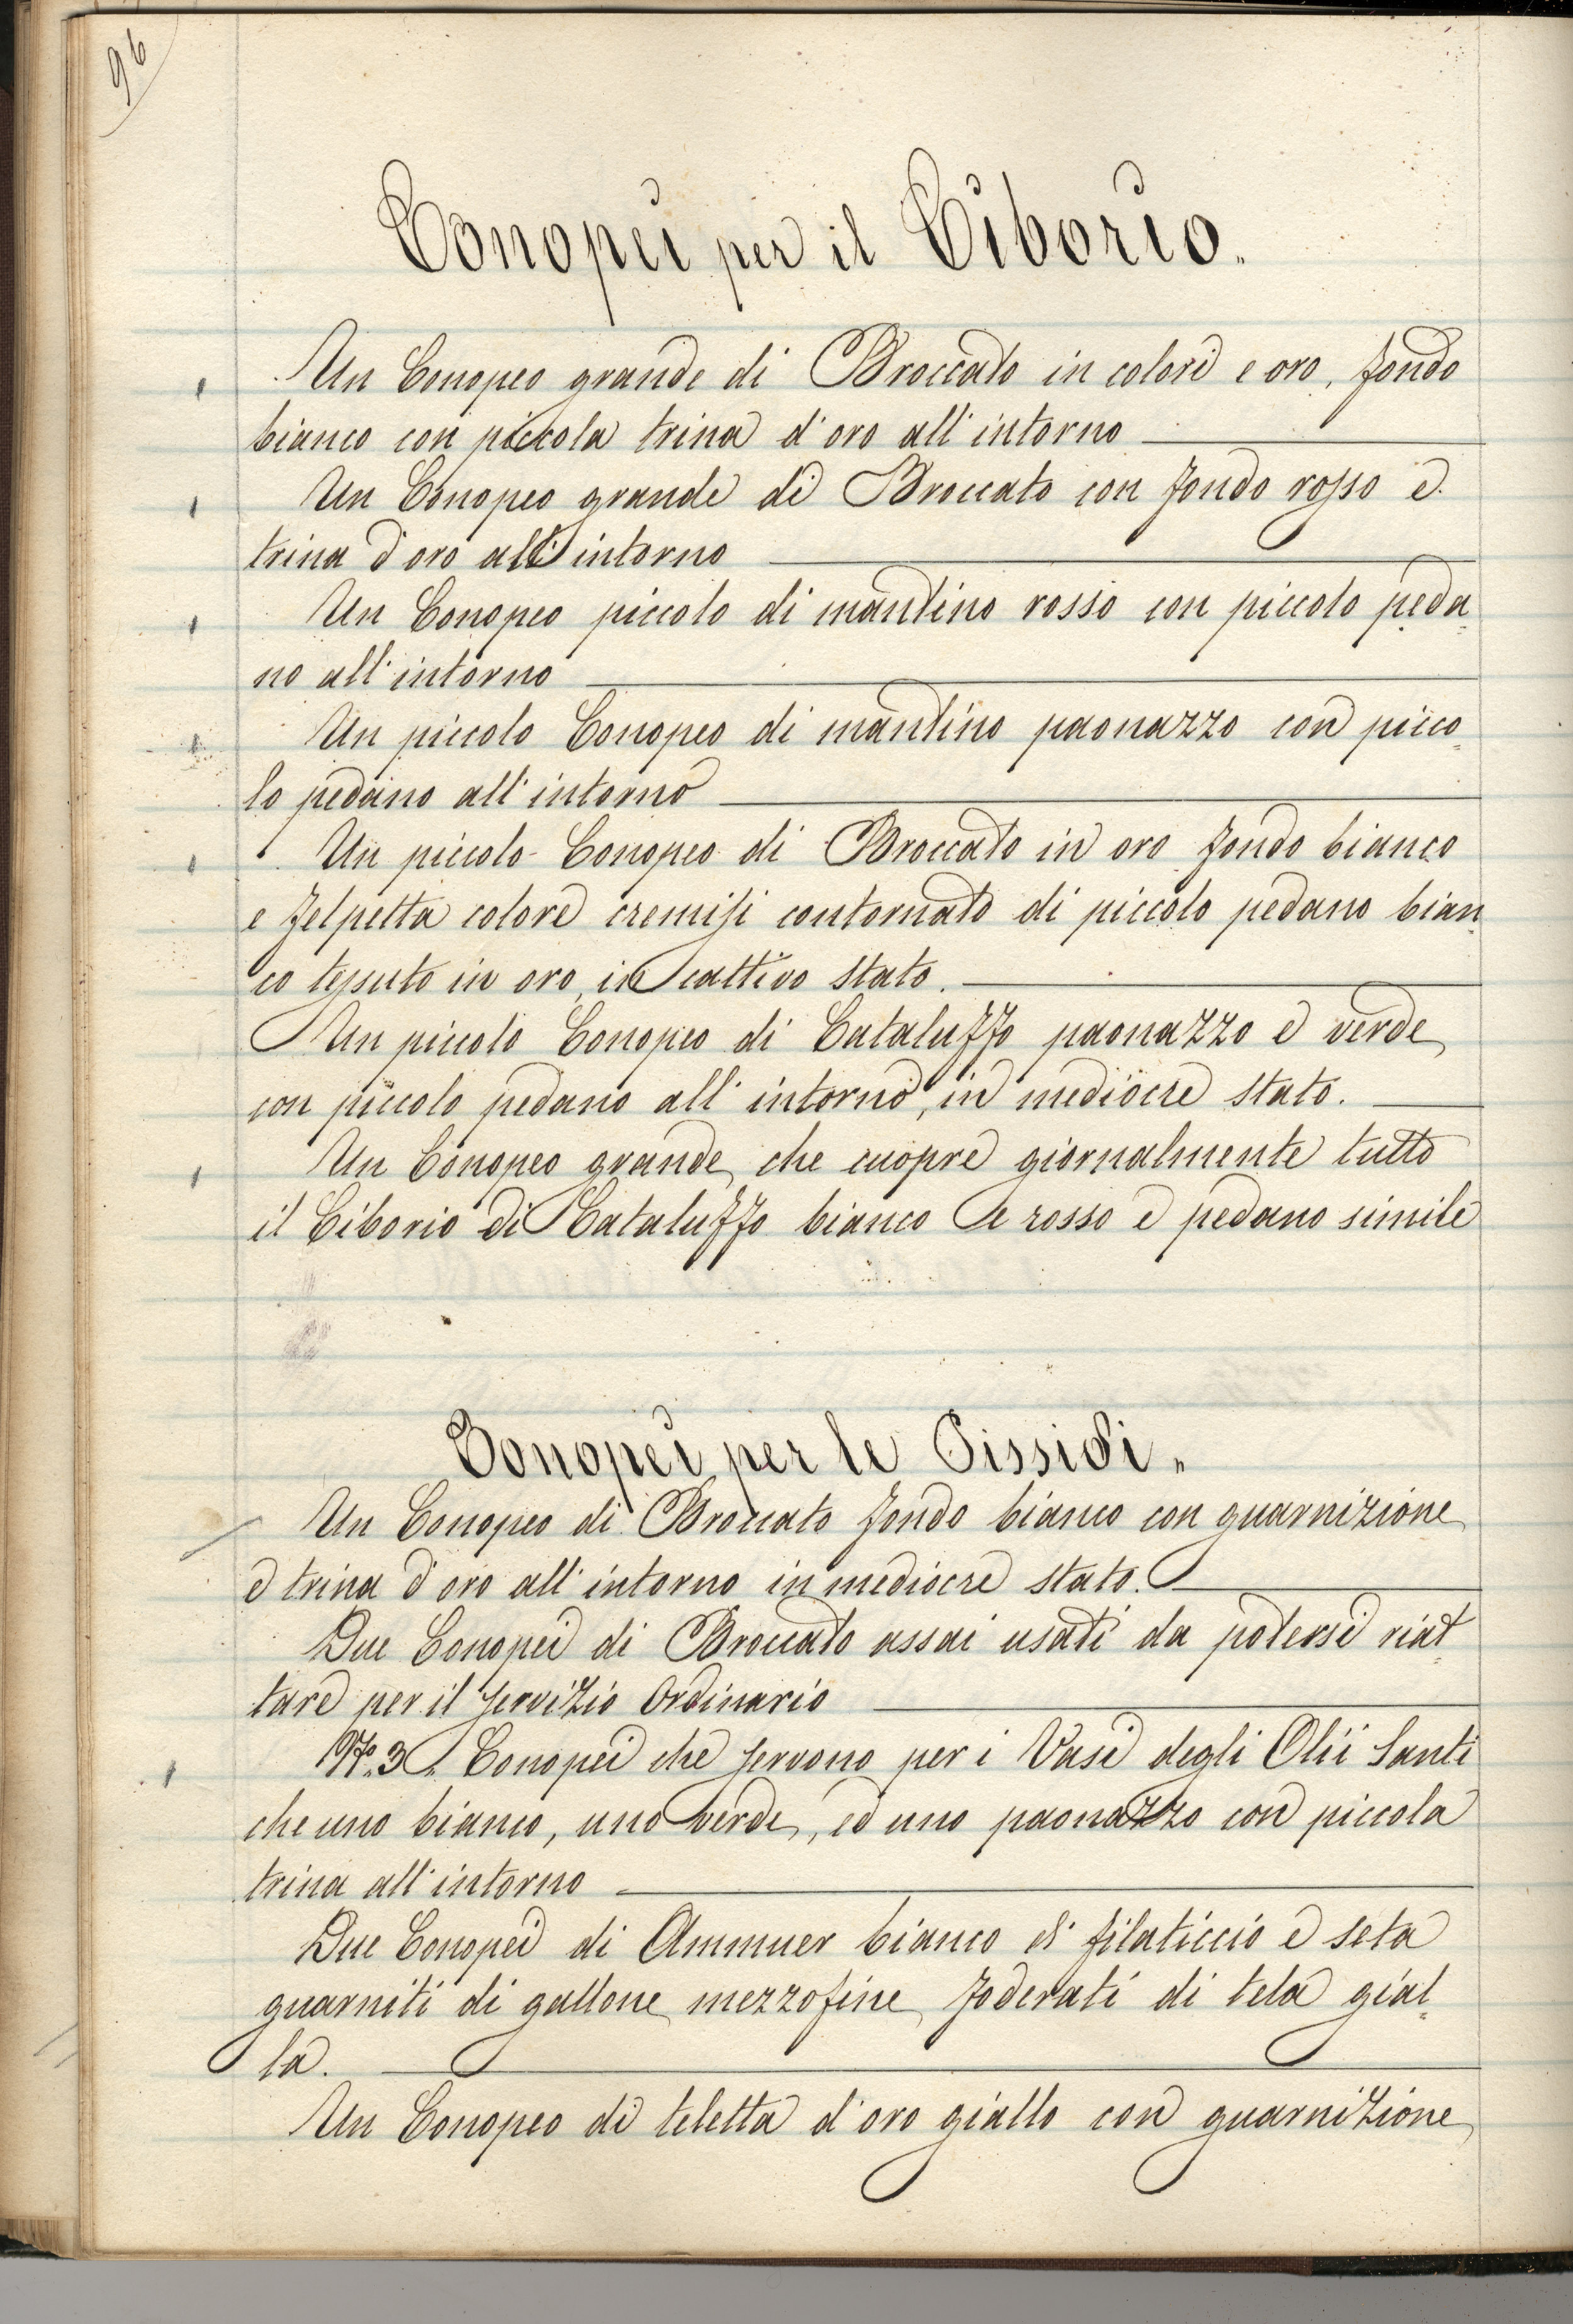 96
Conopei per il Ciborio.
Un Conopeo grande di Broccato in colori e oro, fondo
bianco con piccola trina d'oro all'intorno
Un Conopeo grande di Broccato con fondo rosso e
trina d'oro all'intorno
Un Conopeo piccolo di mantino rosso con piccolo peda=
no all'intorno
Un piccolo Conopeo di mantino paonazzo con picco=
lo pedano all'intorno
Un piccolo Conopeo di Broccato in oro fondo bianco
e felpetta colore cremisi contornato di piccolo pedano bian=
co tessuto in oro, in cattivo stato.
Un piccolo Conopeo di Cataluffo paonazzo e verde
con piccolo pedano all'intorno, in mediocre stato.
Un Conopeo grande che cuopre giornalmente tutto
il Ciborio di Cataluffo bianco e rosso e pedano simile
Conopei per le Pissidi.
Un Conopeo di Broccato fondo bianco con guarnizione
e trina d'oro all'intorno in mediocre stato.
Due Conopei di Broccato assai usati da potersi riat=
tare per il servizio Ordinario
No. 3. Conopei che servono per i Vasi degli Olii Santi
che uno bianco, uno verde, ed uno paonazzo con piccola
trina all'intorno
Due Conopei di Ammuer bianco di filaticcio e seta
guarniti di gallone mezzofine foderati di tela gial=
la.
Un Conopeo di teletta d'oro giallo con guarnizione